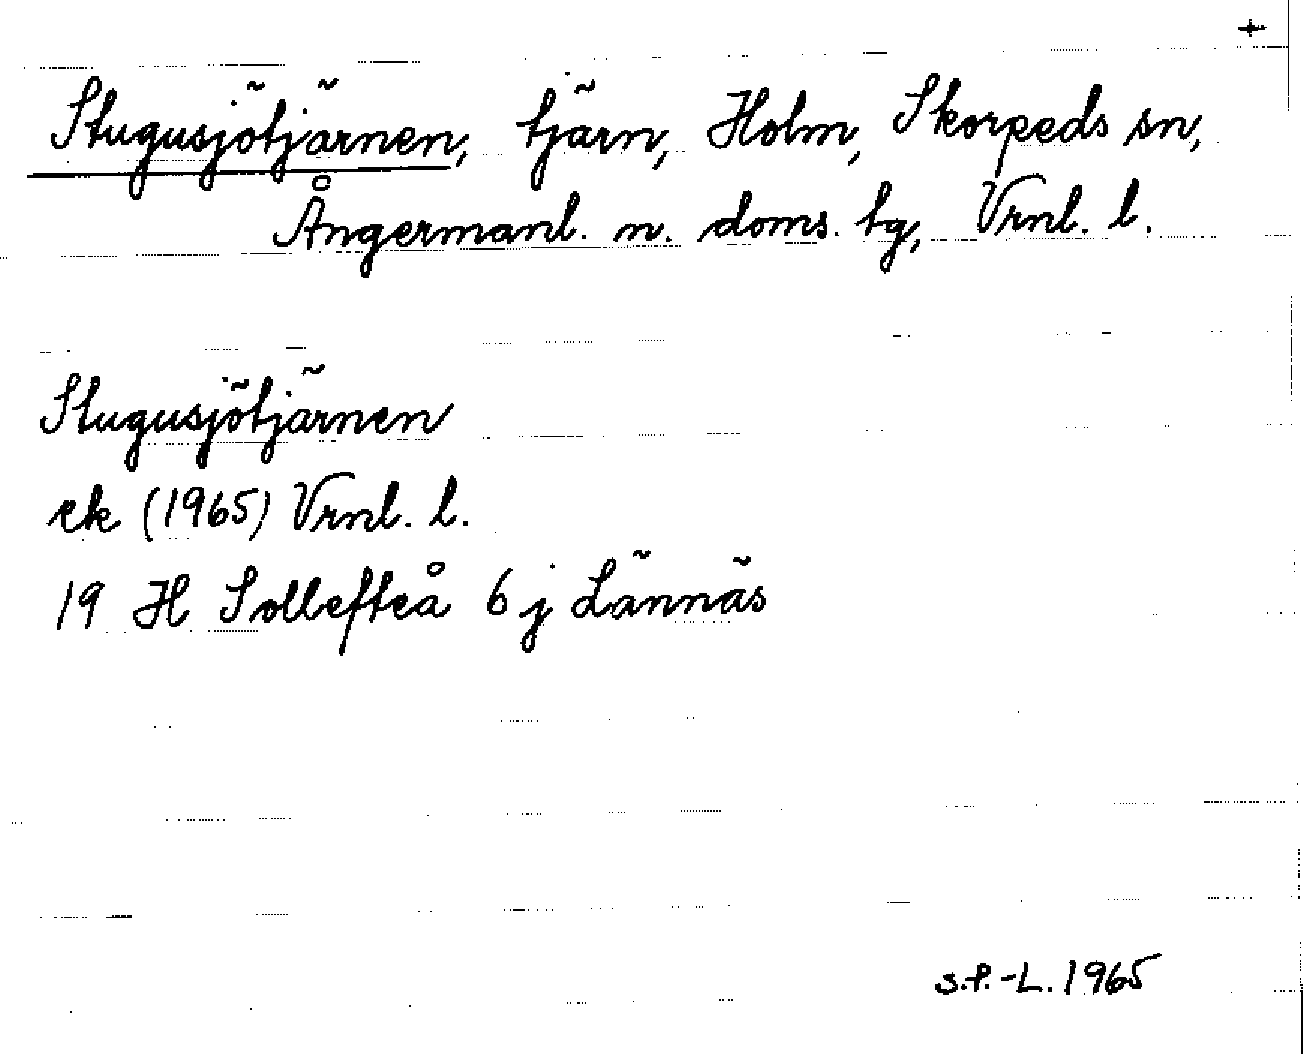 +
Stugusjötjärnen, tjärn, Holm, Skorpeds sn,
Ångermanl. n. doms. tg, Vrnl. l.
Stugusjötjärnen
ek (1965) Vrnl. l.
19 H Sollefteå 6 j Lännäs
s.P.-L. 1965